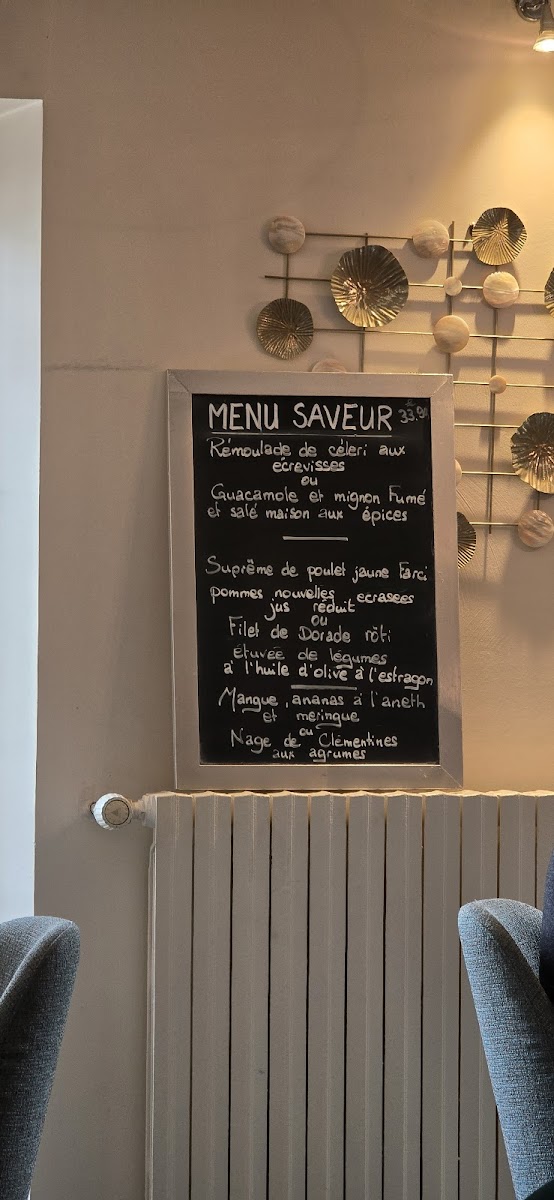 MENU SAVEUR 33.90 €
Rémoulade de céleri aux
écrevisses
ou
Guacamole et mignon Fumé
et salé maison aux épices
Suprême de poulet jaune Farci
pommes nouvelles ecrasées
jus réduit
ou
Filet de Dorade rôti
étuvée de légumes
à l'huile d'olive à l'estragon
Mangue, ananas à l'aneth
et meringue
ou
Nage de Clémentines
aux agrumes